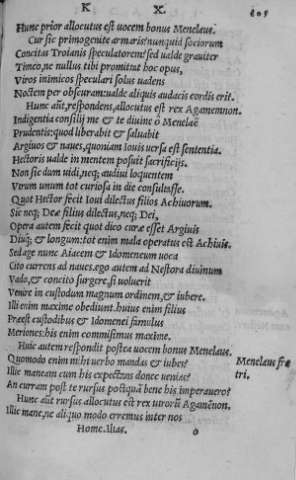 K X. 205
Hunc prior allocutus est uocem bonus Menelaus.
Cur sic primogenite armaris? nunquid sociorum
Concitas Troianis speculatorem? sed ualde grauiter
Timeo, ne nullus tibi promittat hoc opus,
Viros inimicos speculari solus uadens
Noctem per obscuram: ualde aliquis audacis cordis erit.
Hunc aũt, respondens, allocutus est rex Agamemnon.
Indigentia consilij me & te diuine ô Menelaë
Prudentis: quod liberabit & saluabit
Argiuos & naues, quoniam Iouis uersa est sententia.
Hectoris ualde in mentem posuit sacrificijs.
Non sic dum uidi, neq; audiui loquentem
Virum unum tot curiosa in die consultasse.
Quot Hector fecit Ioui dilectus filios Achiuorum.
Sic neq; Deæ filius dilectus, neq; Dei,
Opera autem fecit quot dico curæ esset Argiuis
Diuq; & longum: tot enim mala operatus est Achiuis.
Sed age nunc Aiacem & Idomeneum uoca
Cito currens ad naues. ego autem ad Nestora diuinum
Vado, & concito surgere, si uoluerit
Venire in custodum magnum ordinem, & iubere.
Illi enim maxime obediunt. huius enim filius
Præest custodibus & Idomenei famulus
Meriones: his enim commisimus maxime.
Huic autem respondit postea uocem bonus Menelaus.
Quomodo enim mihi uerbo mandas & iubes? Menelaus fra
Illic maneam cum his expectans donec uenias? tri.
An curram post te rursus postquã bene his imperauero?
Hunc aũt rursus allocutus est rex uirorũ Agamẽnon.
Illic mane, ne aliquo modo erremus inter nos
Home. Ilias. o